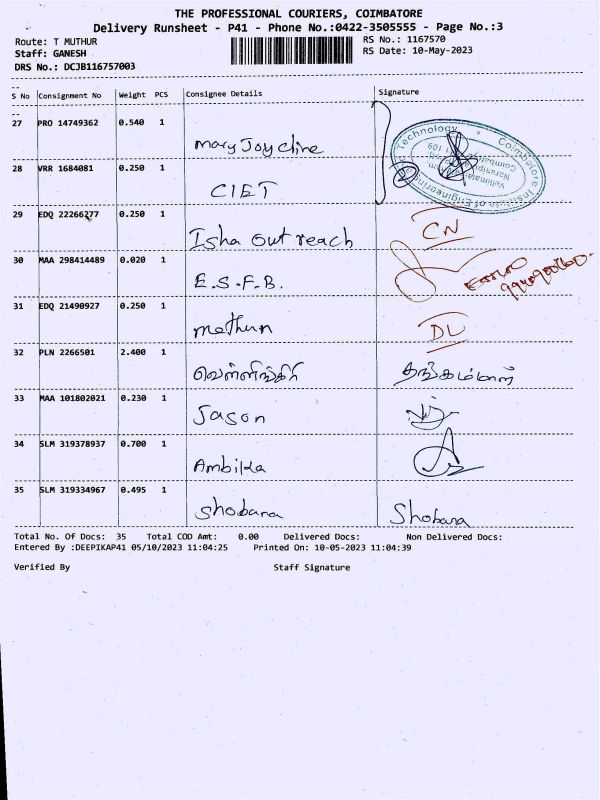 THE PROFESSIONAL COURIERS, COIMBATORE
Delivery Runsheet - P41 - Phone No.:0422-3505555 - Page No.:3
Route: T MUTHUR
RS No.: 1167570
Staff: GANESH
RS Date: 10-May-2023
DRS No.: DCJB116757003
S No Consignment No Weight PCS Consignee Details Signature
27 PRO 14749362 0.540 1 Mary Joycline
28 VRR 1684081 0.250 1 CIET
29 EDQ 22266277 0.250 1 Isha out reach CN
30 MAA 298414489 0.020 1 E.S.F.B.
31 EDQ 21490927 0.250 1 methun DL
32 PLN 2266501 2.400 1 வெள்ளிங்கிரி தங்கம்மாள்
33 MAA 101802021 0.230 1 Jason
34 SLM 319378937 0.700 1 Ambika
35 SLM 319334967 0.495 1 Shobana Shobana
Total No. Of Docs: 35 Total COD Amt: 0.00 Delivered Docs: Non Delivered Docs:
Entered By :DEEPIKAP41 05/10/2023 11:04:25 Printed On: 10-05-2023 11:04:39
Verified By Staff Signature